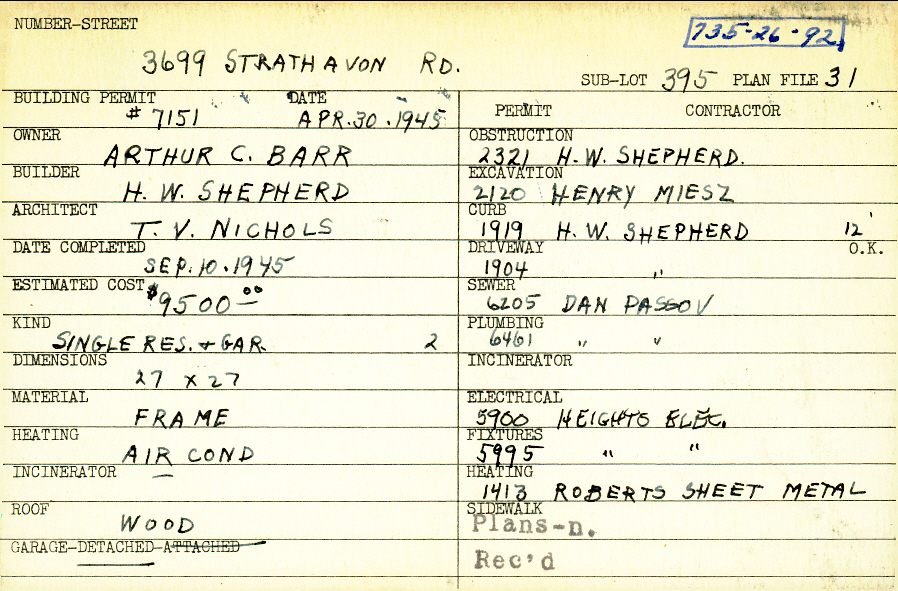 NUMBER-STREET
735-26-92
3699 STRATHAVON RD.
SUB-LOT 395 PLAN FILE 31
BUILDING PERMIT # 7151 DATE APR.30.1945
OWNER ARTHUR C. BARR
BUILDER H. W. SHEPHERD
ARCHITECT T. V. NICHOLS
DATE COMPLETED SEP.10.1945
ESTIMATED COST $9500.00
KIND SINGLE RES. + GAR. 2
DIMENSIONS 27 x 27
MATERIAL FRAME
HEATING AIR COND
INCINERATOR —
ROOF WOOD
GARAGE-DETACHED-ATTACHED
PERMIT CONTRACTOR
OBSTRUCTION 2321 H.W. SHEPHERD.
EXCAVATION 2120 HENRY MIESZ
CURB 1919 H.W. SHEPHERD 12'
DRIVEWAY 1904 " O.K.
SEWER 6205 DAN PASSOV
PLUMBING 6461 " "
INCINERATOR
ELECTRICAL 5900 HEIGHTS ELEC.
FIXTURES 5995 " "
HEATING 1413 ROBERTS SHEET METAL
SIDEWALK
Plans-n.
Rec'd